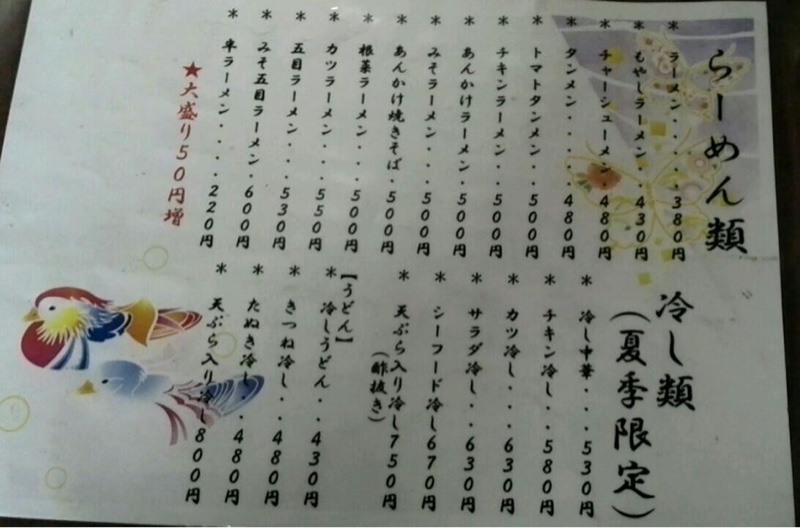 らーめん類
＊ ラーメン・・・・380円
＊ もやしラーメン・・430円
＊ チャーシューメン・・480円
＊ タンメン・・・・・480円
＊ トマトタンメン・・500円
＊ チキンラーメン・・500円
＊ あんかけラーメン・・500円
＊ みそラーメン・・・500円
＊ あんかけ焼きそば・・500円
＊ 根菜ラーメン・・・500円
＊ カツラーメン・・・550円
＊ 五目ラーメン・・・530円
＊ みそ五目ラーメン・600円
＊ 半ラーメン・・・・220円
★大盛り50円増
冷し類
（夏季限定）
＊ 冷し中華・・・530円
＊ チキン冷し・・580円
＊ カツ冷し・・・630円
＊ サラダ冷し・・630円
＊ シーフード冷し670円
＊ 天ぷら入り冷し750円
（酢抜き）
【うどん】
＊ 冷しうどん・・430円
＊ きつね冷し・・480円
＊ たぬき冷し・・480円
＊ 天ぷら入り冷し800円